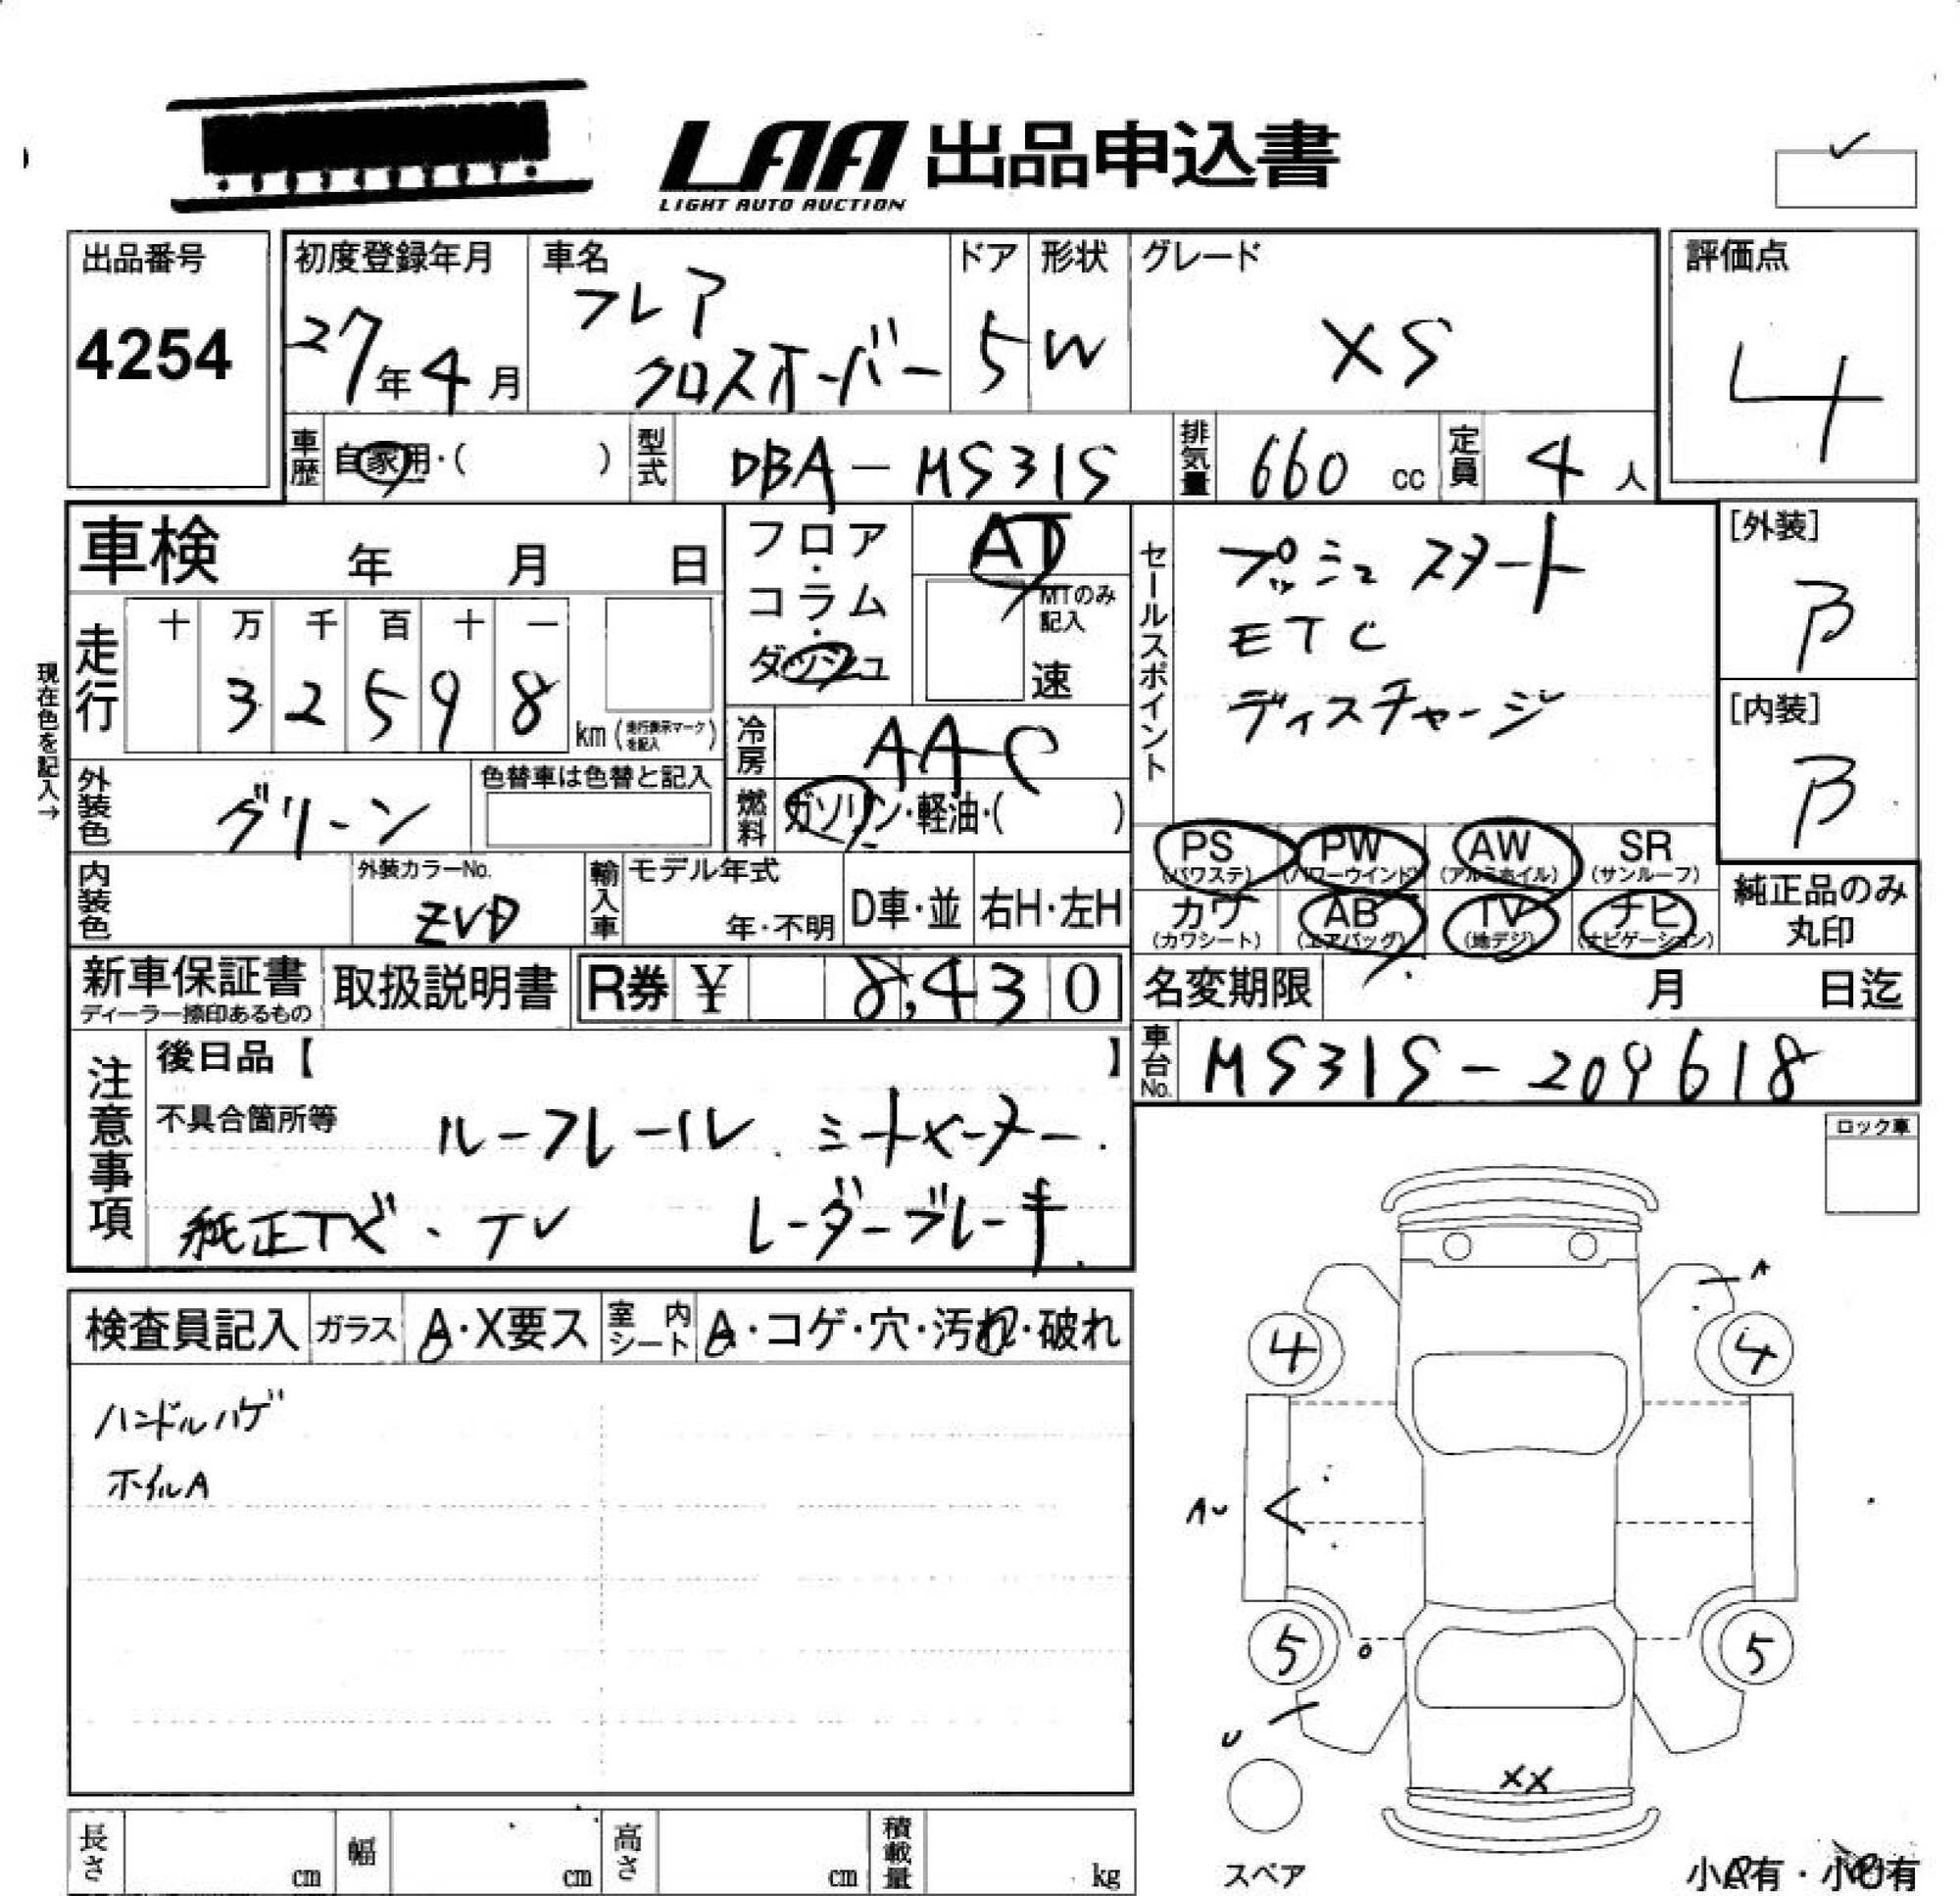 LAA 出品申込書
LIGHT AUTO AUCTION
出品番号
4254
初度登録年月
27年4月
車名
フレア
クロスオーバー
ドア
5
形状
W
グレード
XS
評価点
4
車歴 自家用・( )
型式 DBA-MS31S
排気量 660 cc
定員 4 人
車検 年 月 日
走行
十 万 千 百 十 一
3 2 5 9 8
km (走行表示マークを記入)
現在色を記入→
外装色 グリーン
色替車は色替と記入
フロア・コラム・ダッシュ
AT
MTのみ記入
速
冷房 AAC
燃料 ガソリン・軽油・( )
セールスポイント
プッシュ スタート
ETC
ディスチャージ
[外装]
B
[内装]
B
PS (パワステ)
PW (パワーウインド)
AW (アルミホイル)
SR (サンルーフ)
カワ (カワシート)
AB (エアバッグ)
TV (地デジ)
ナビ (ナビゲーション)
純正品のみ
丸印
内装色
外装カラーNo.
輸入車
モデル年式
年・不明
D車・並
右H・左H
新車保証書
ディーラー捺印あるもの
取扱説明書
R券 ¥ 8,430
名変期限 月 日迄
車台No. MS31S-209618
注意事項
後日品【 】
不具合箇所等
ルーフレール、シートヒーター.
純正ナビ・TV レーダーブレーキ
ロック車
検査員記入
ガラス
A・X要ス
室内シート
A・コゲ・穴・汚れ・破れ
ハンドルハゲ
ホイルA
A
4
4
AU
5
5
U
XX
スペア
長さ cm
幅 cm
高さ cm
積載量 kg